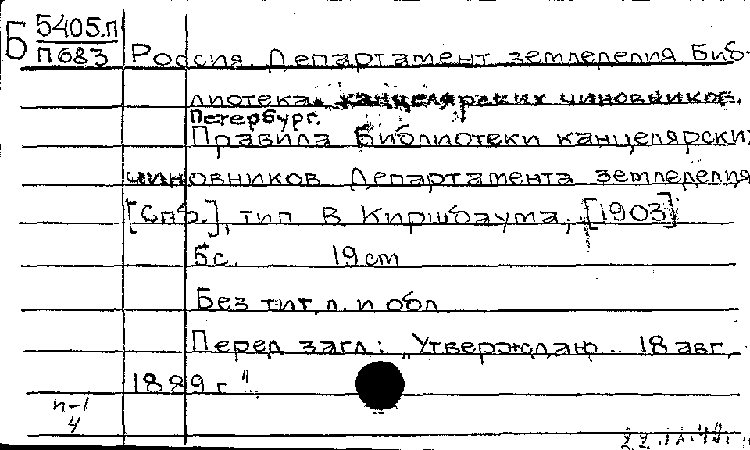 Б 5405.П
П683
Россия. Департамент земледелия Биб-
лиотека канцелярских чиновников.
Петербург.
Правила библиотеки канцелярских
чиновников Департамента земледелия
[Спб.], тип В Киршбаума, [1903]
6с. 19cm
Без тит. л. и обл
Перед загл: "Утверждаю .. 18 авг.
1889 г".
n-1
4